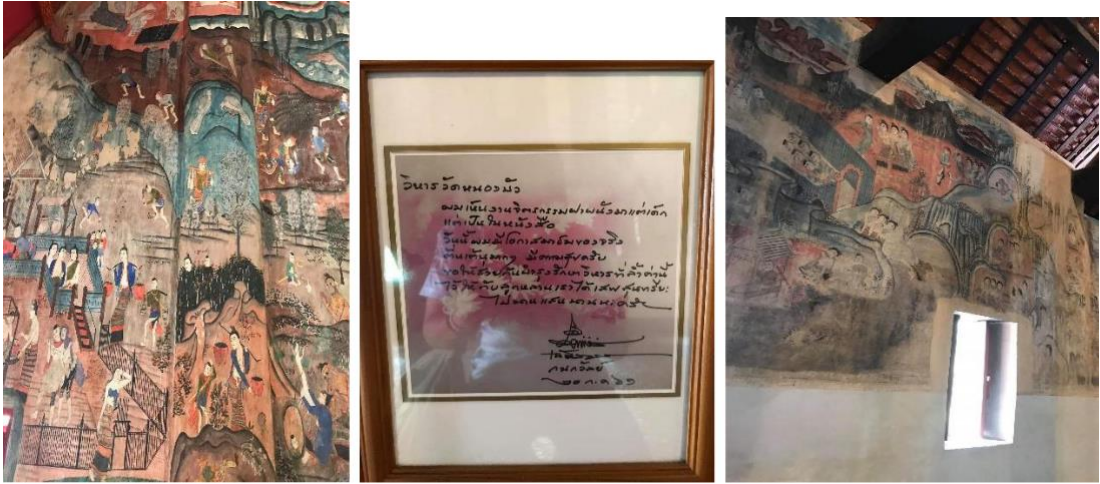 วิหารวัดหนองบัว
ผมเห็นงานจิตรกรรมฝาผนังมาแต่เด็ก
แต่เป็นในหนังสือ
วันนี้ผมมีโอกาสมาชมของจริง
ตื่นเต้นมากๆ มีความสุขครับ
ขอให้ช่วยกัน รักษาวิหารที่ล้ำค่านี้
ไว้ให้กับลูกหลานเราได้เสพสุนทรียะ
ไปนานแสนนานนะครับ